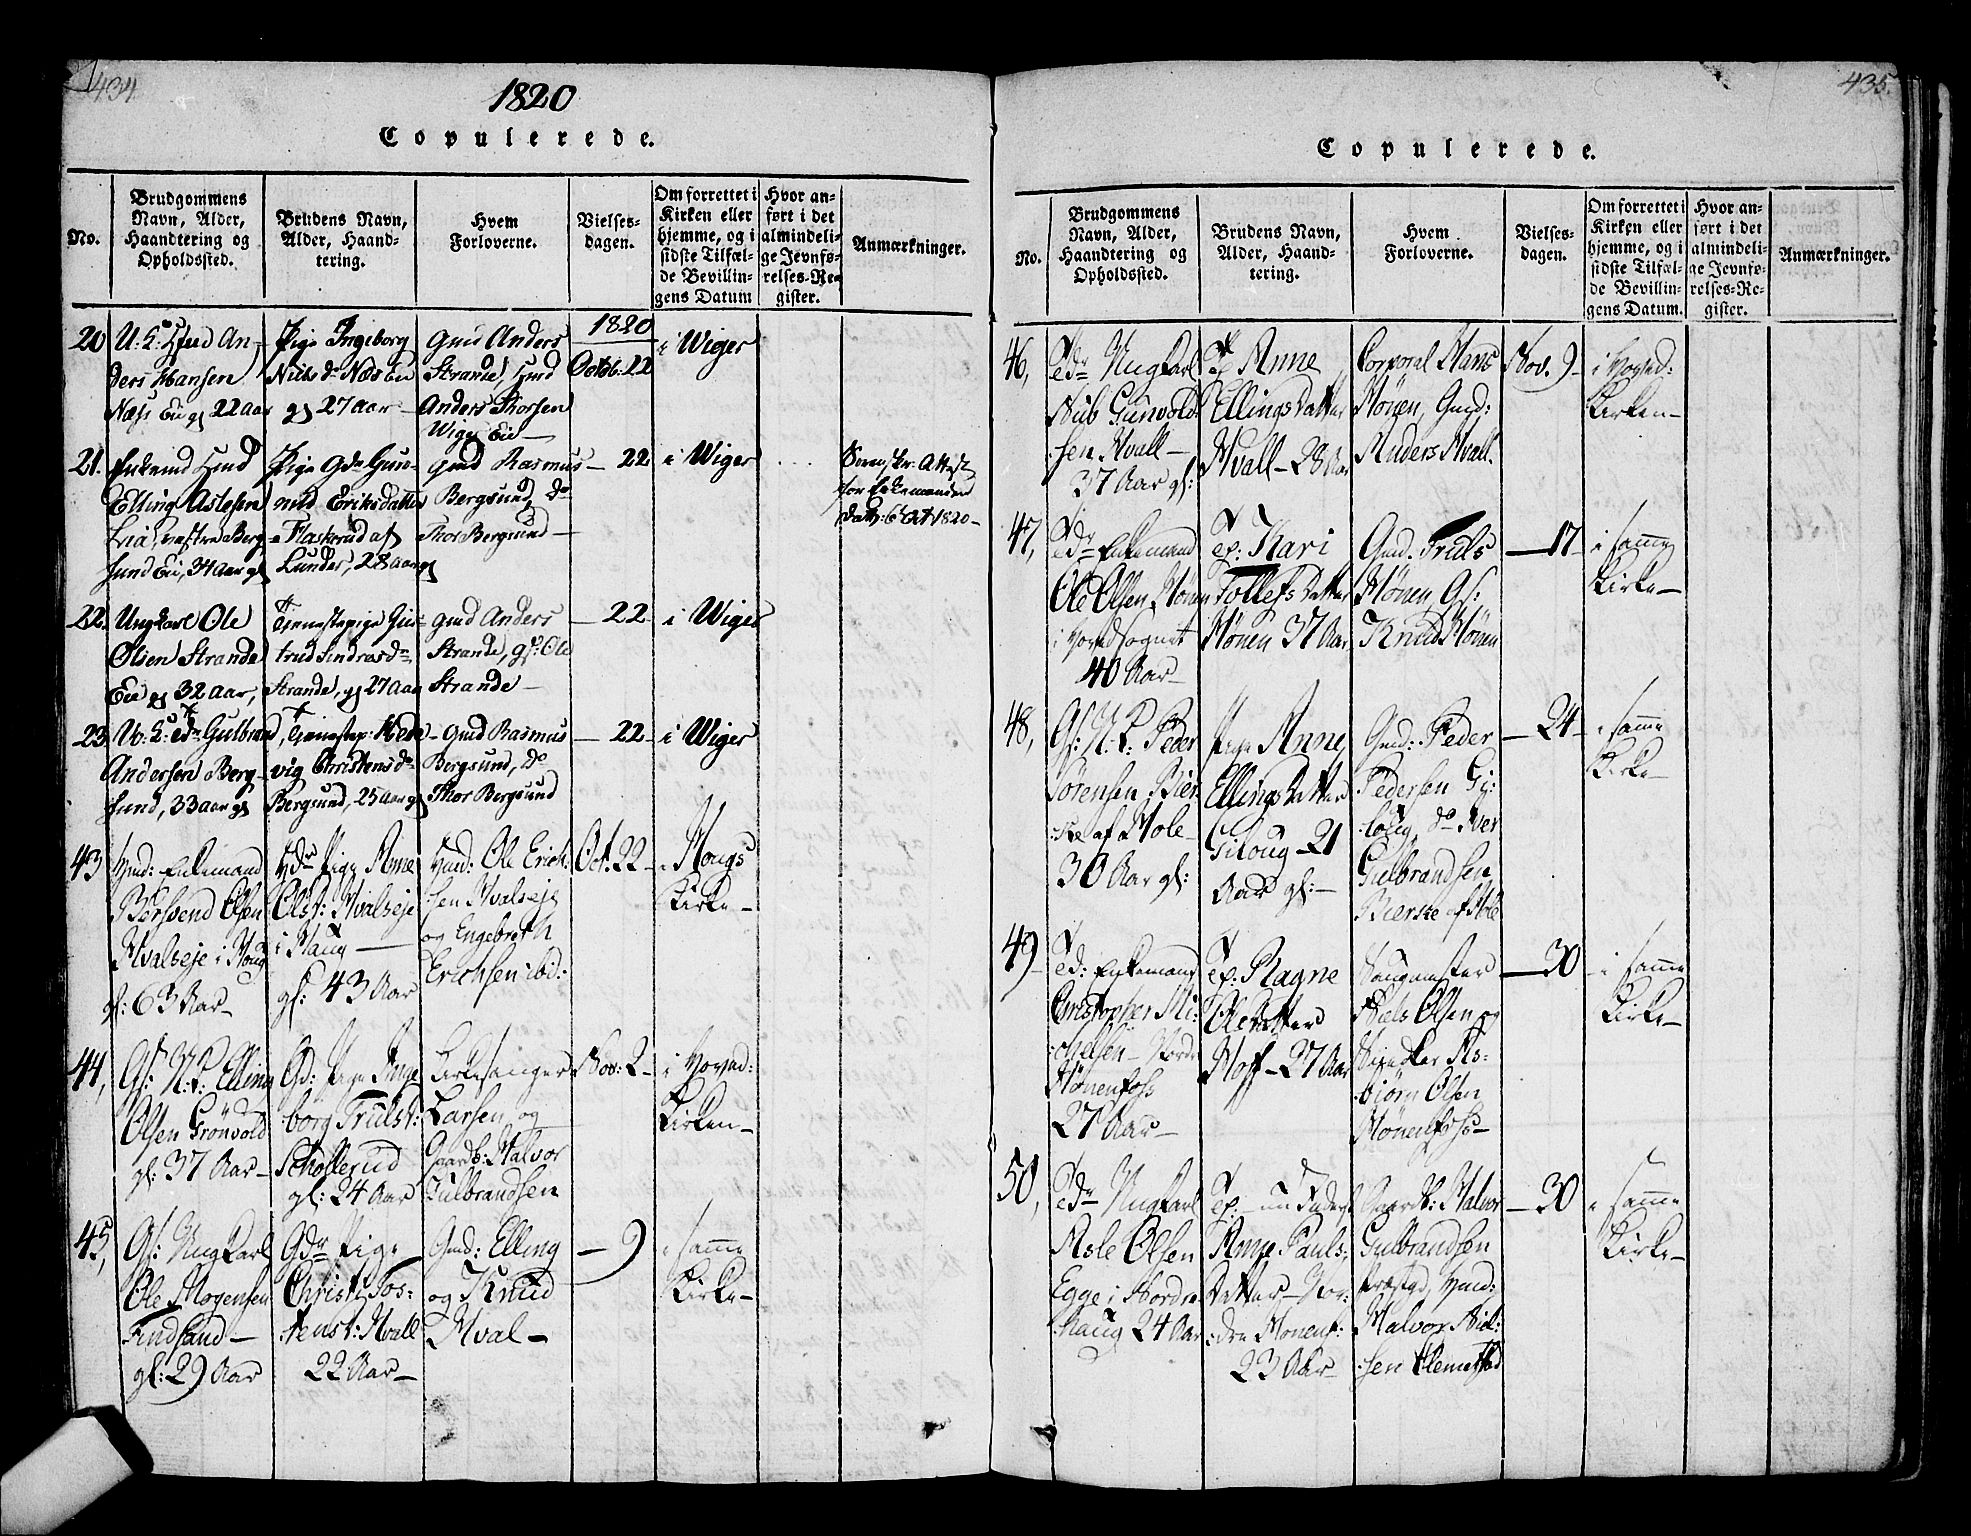 434
1820
Copulerede.
No.
Brudgommens
Navn, Alder,
Haandtering og
Opholdssted.
Brudens Navn,
Alder, Haand-
tering.
Hvem
Forloverne.
Vielses-
dagen.
Om forrettet i
Kirken eller
hjemme, og i
sidste Tilfæl-
de Bevillin-
gens Datum
Hvor an-
ført i det
almindeli-
ge Jevnfø-
relses-Re-
gister.
Anmærkninger.
20
U. K. An-
ders Hansen
Næss Eie gl 22 aar
Pige Ingeborg
Niels D. Næs Eie
gl 27 aar
Gmd Anders
Strande, Hmd
Anders Thorsen
Wiger Eie
1820
Octob: 22
i Wiger
21.
Enkemd Hmd
Elling Aslesen
Lia, Berg-
sund Eie, 34 aar gl
Pige Gun-
nild Eriksdatter
Flaskerud af
Lunder, 28 aar gl
Gmd Rasmus
Bergsund, do
Thor Bergsund
22
i Wiger
Attest
for Enkemanden
dat: 6 Oct 1820
22.
Ungkarl Ole
Olsen Strande
Eie gl 32 aar,
Tjenestepige Gun-
Strande, gl 27 aar
Gmd Anders
Strande, Ole
Strande
22
i Wiger
23
U. K. Gulbrand
Andersen Berg-
sund, 33 aar gl
Tjenestep: Hed-
vig Christens D.
Bergsund, 25 aar gl
Gmd Rasmus
Bergsund, do
Thor Bergsund
22
i Wiger
43
Hmd: Enkemand
Berssvend Olsen
Hvalseje i Houg
gl: 63 Aar
Pige Anne
Olsd: Hvalseje
i Haug
gl: 43 Aar
Hmd: Ole Erich-
sen Hvalseje
og Engebreth
Erichsen ibid:
Oct. 22
i Hougs
Kirke
44,
Gf: U. K: Elling
Olsen Grönvold
gl: 37 Aar
Gd: Pige Inge-
borg Trulsd:
Schollerud
gl: 24 Aar
Kirkesanger
Larsen og
Gaardb: Halvor
Gulbrandsen
Nov: 2
i Hoved-
Kirken
45,
Gf: Ungkarl
Ole Mogensen
Findsand
gl: 29 Aar
Gdr Pige
Christi Tos-
tensd: Hvall
22 Aar
Gmd: Elling
og Knud
Hval
9
i samme
Kirke
435.
Copulerede.
No.
Brudgommens
Navn, Alder,
Haandtering og
Opholdssted.
Brudens Navn,
Alder, Haand-
tering.
Hvem
Forloverne.
Vielses-
dagen.
Om forrettet i
Kirken eller
hjemme, og i
sidste Tilfæl-
de Bevillin-
gens Datum.
Hvor an-
ført i det
almindeli-
ge Jevnfø-
relses-Re-
gister.
Anmærkninger.
46,
Ungkarl
Niels Gunvold-
sen Hvall
37 Aar gl:
Anne
Ellings Datter
Hvall 28 Aar
Corporal Hans
Hönen, Gmd:
Anders Hvall.
Nov. 9
i Hoved-
Kirken
47,
Enkemand
Ole Olsen Hönen
i Hovedsognet
40 Aar
Kari
Tollefs Datter
Hönen 37 Aar
Gmd. Truls
Hönen Gf:
Knud Hönen
17
i samme
Kirke
48,
Gf: U. K: Peder
Sörensen Bier-
ke af Hole
30 Aar gl:
Pige Anne
Ellings Datter
Giloug 21
Aar gl:
Gmd: Peder
Pedersen Gi-
loug, do Iver
Gulbrandsen
Bierke af Hole
24
i samme
Kirke
49
Enkemand
Christopher Mi-
chelsen Nordre
Hönenfoss
27 Aar
Ragne
Ole Datter
Hoff 27 Aar
Saugmester
Niels Olsen og
Snedker As-
björn Olsen
Hönenfoss
30
i samme
Kirke
50,
Ungkarl
Asle Olsen
Egge i Nordre
Haug 24 Aar
Anne Pauls-
datter Nor-
dre Hönenf:
23 Aar
Gaardb: Halvor
Gulbrandsen
Hmd:
Halvor Niel-
sen
30
i samme
Kirke